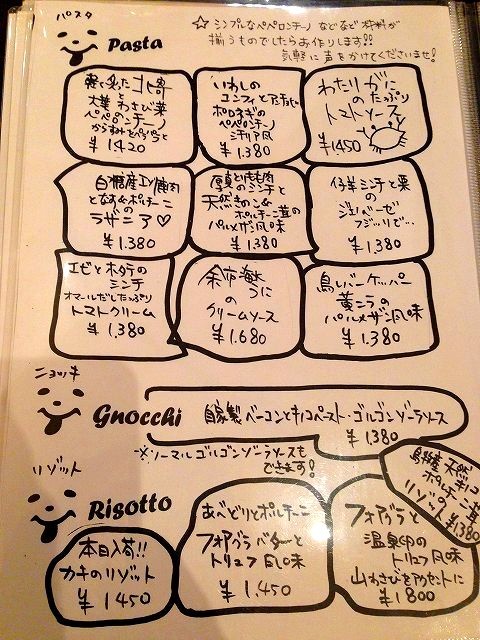 パスタ
Pasta
☆ シンプルなペペロンチーノ などなど 材料が
揃うものでしたらお作りします!!
気軽に声をかけてくださいませ!
と
大葉 わさび菜
ペペロンチーノ
からすみ
¥1,420
いわしの
コンフィとアンチョビ
ペペロンチーノ
シチリア風
¥1.380
わたりがに
のたっぷり
トマトソース
¥1450
白糠産エゾ鹿肉
となす&ポルチーニ
の
ラザニア♡
¥1.380
のミンチと
天然きのこ&
ポルチーニ茸の
パルメザン風味
¥1.380
仔羊ミンチと栗
の
ジェノベーゼ
フジッリで…
¥1.380
エビとホタテの
ミンチ
オマールだしたっぷり
トマトクリーム
¥1.380
余市
うに
の
クリームソース
¥1.680
鳥レバーケッパー
黄ニラの
パルメザン風味
¥1.380
ニョッキ
Gnocchi
自家製ベーコンとキノコペースト・ゴルゴンゾーラソース
¥1380
※ノーマルゴルゴンゾーラソースも
できます!
リゾット
Risotto
天然
キノコ
ポルチーニ茸
リゾット
¥1380
本日入荷!!
カキのリゾット
¥1450
あべどりとポルチーニ
フォアグラバターと
トリュフ風味
¥1.450
フォアグラと
温泉卵の
トリュフ風味
山わさびをアクセントに
¥1800